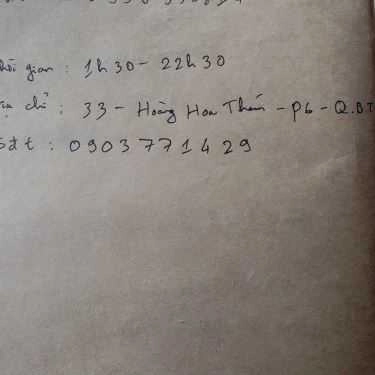 hời gian : 1h30 - 22h30
ịa chỉ : 33 - Hoàng Hoa Thám - P6 - Q.BT
Sđt : 0903771429